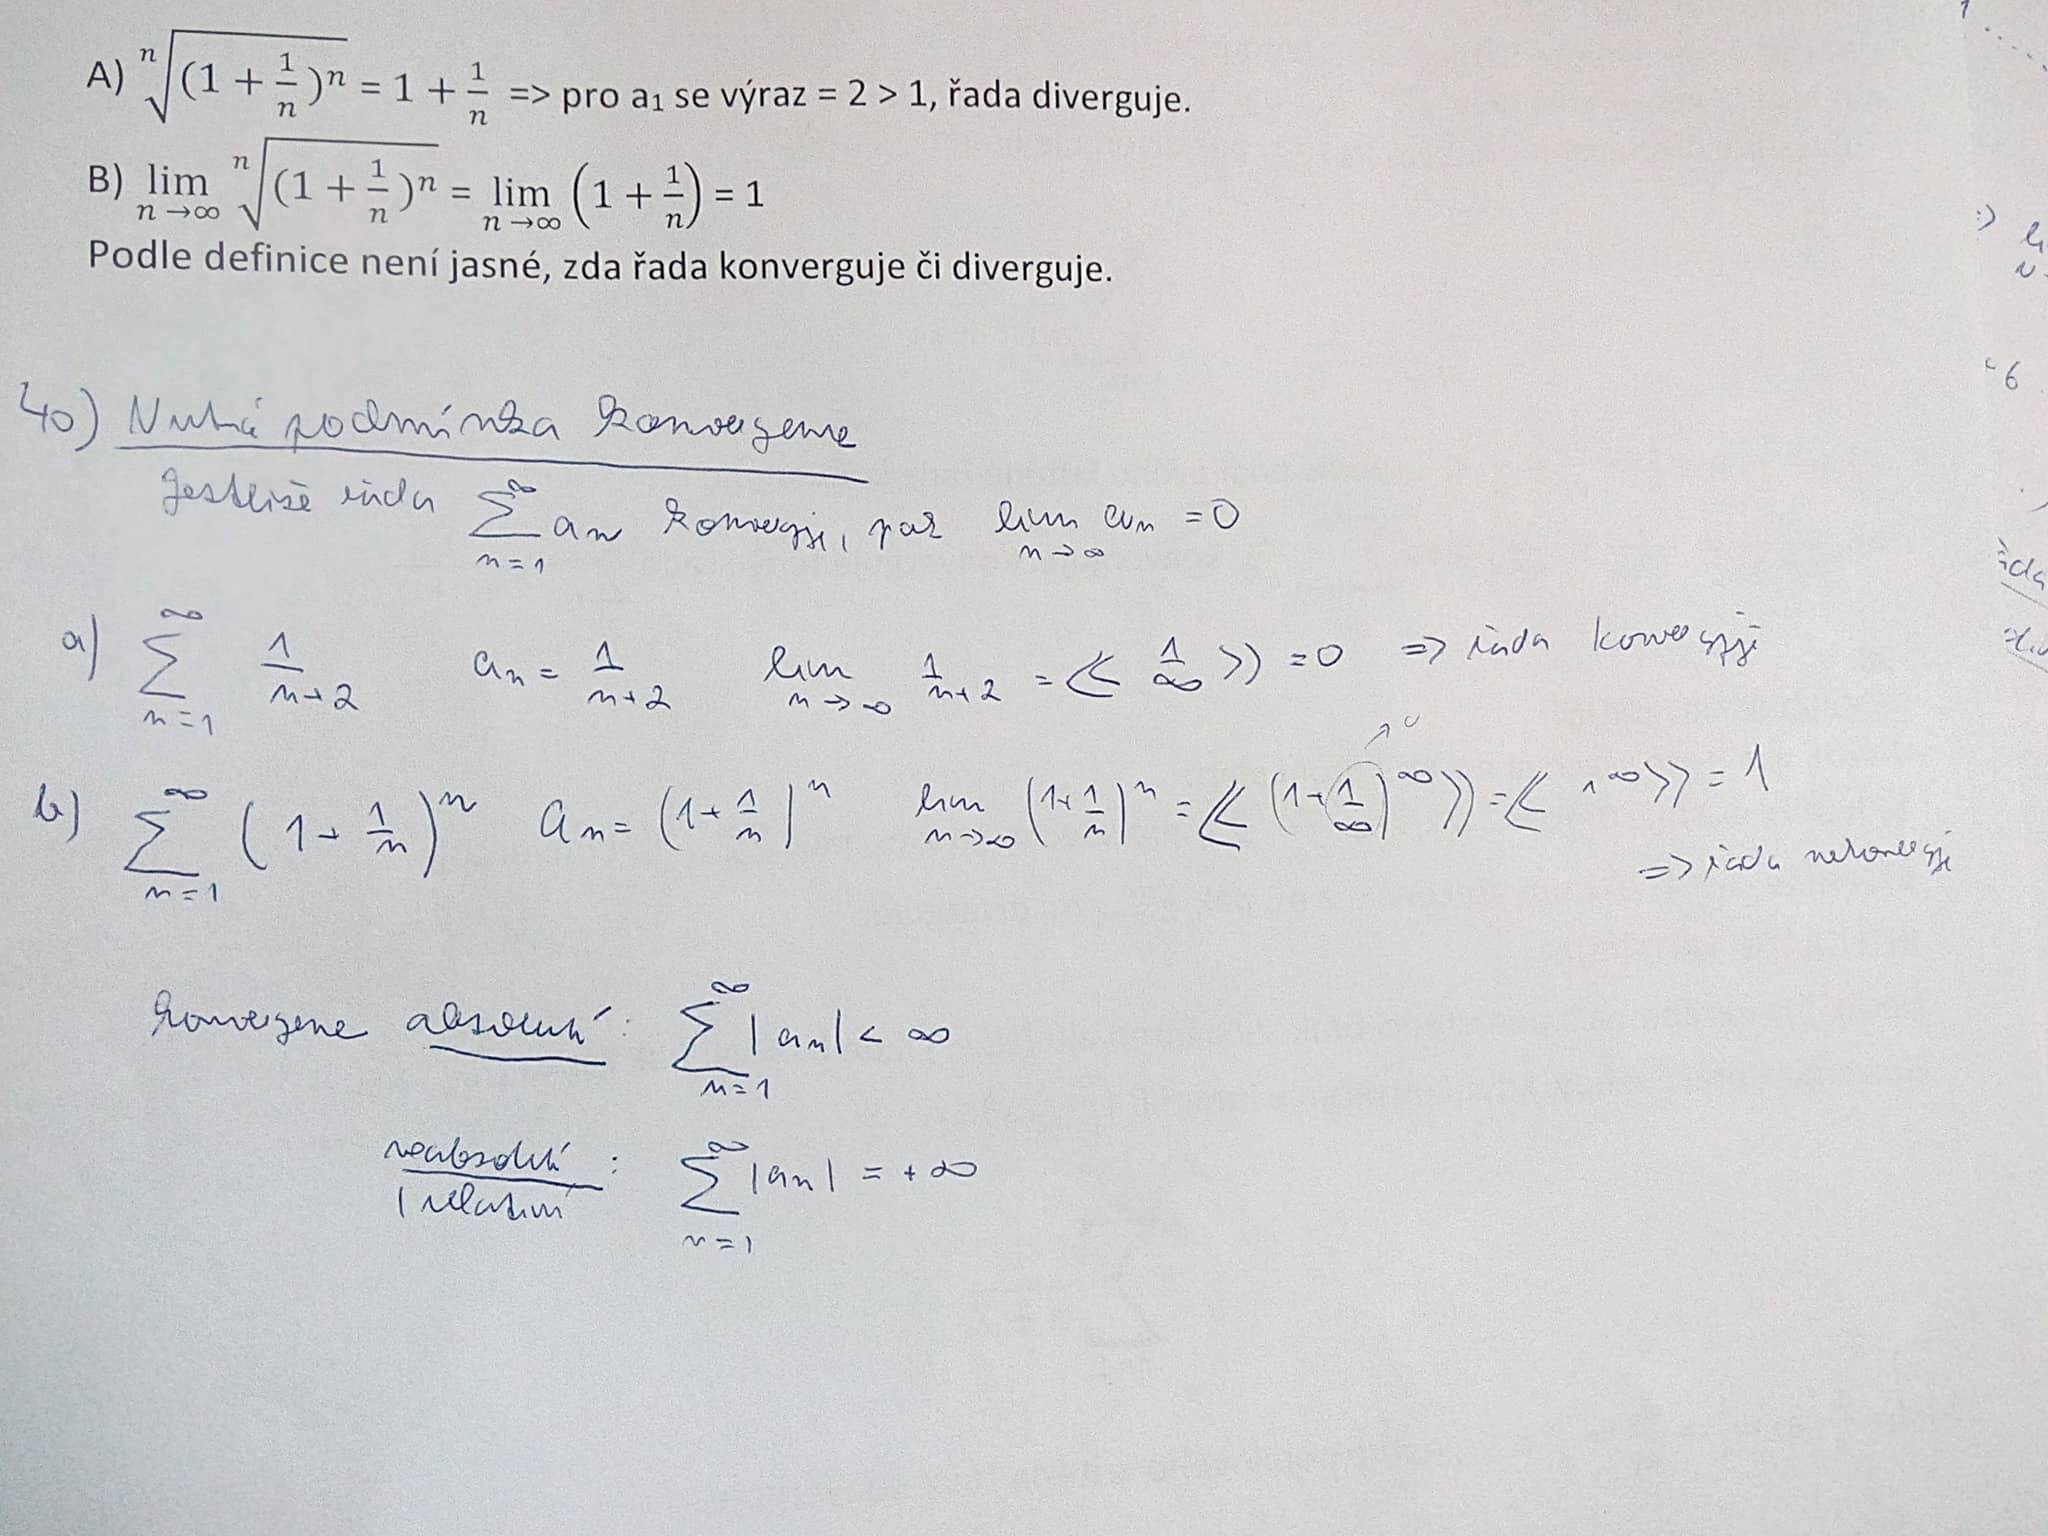 A) ⁿ√((1 + 1/n)ⁿ) = 1 + 1/n => pro a₁ se výraz = 2 > 1, řada diverguje.
B) lim n→∞ ⁿ√((1 + 1/n)ⁿ) = lim n→∞ (1 + 1/n) = 1
Podle definice není jasné, zda řada konverguje či diverguje.
40) Nutná podmínka konvergence
Jestliže řada ∑_{n=1}^{∞} aₙ konverguje, pak lim n→∞ aₙ = 0
a) ∑_{n=1}^{∞} 1/(n+2) aₙ = 1/(n+2) lim n→∞ 1/(n+2) = << 1/∞ >> = 0 => řada konverguje
b) ∑_{n=1}^{∞} (1 + 1/n)ⁿ aₙ = (1 + 1/n)ⁿ lim n→∞ (1 + 1/n)ⁿ = << (1 + 1/∞)^∞ >> = << 1^∞ >> = 1
↗ 0
=> řada nekonverguje
konvergence absolutní: ∑_{n=1}^{∞} |aₙ| < ∞
neabsolutní : ∑_{n=1}^{∞} |aₙ| = +∞
/ relativní